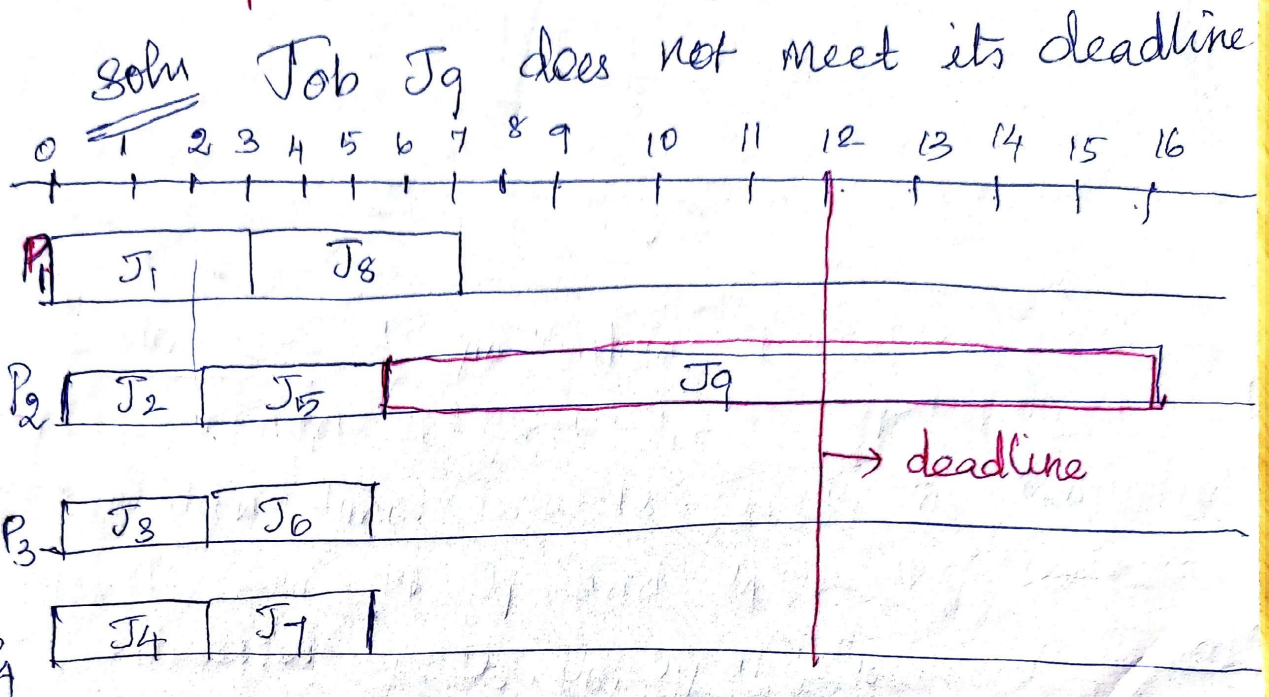 soln Job J9 does not meet its deadline
0 1 2 3 4 5 6 7 8 9 10 11 12 13 14 15 16
P1 J1 J8
P2 J2 J5 J9
→ deadline
P3 J3 J6
J4 J7